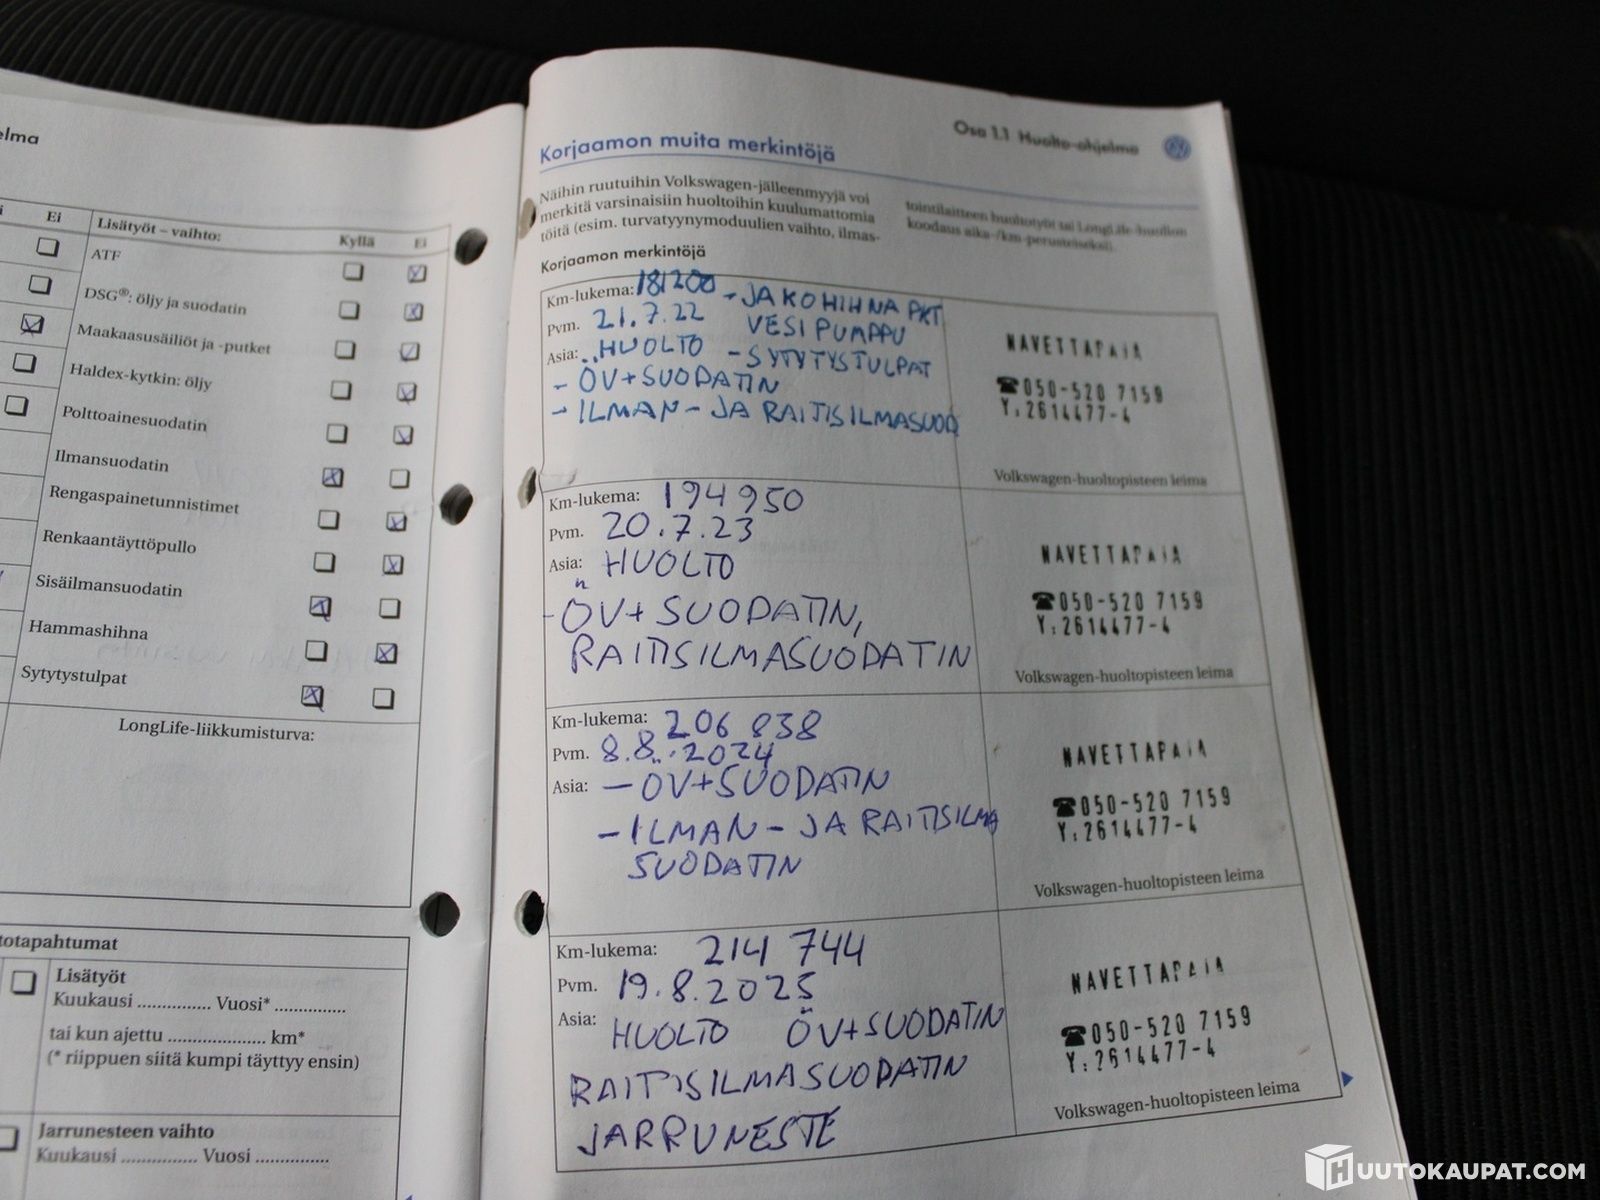 Ei
Lisätyöt – vaihto:
Kyllä
Ei
ATF
DSG®: öljy ja suodatin
Maakaasusäiliöt ja -putket
Haldex-kytkin: öljy
Polttoainesuodatin
Ilmansuodatin
Rengaspainetunnistimet
Renkaantäyttöpullo
Sisäilmansuodatin
Hammashihna
Sytytystulpat
LongLife-liikkumisturva:
Lisätyöt
Kuukausi .............. Vuosi* ..............
tai kun ajettu ................... km*
(* riippuen siitä kumpi täyttyy ensin)
Jarrunesteen vaihto
Kuukausi .............. Vuosi ..............
Osa 1.1 Huolto-ohjelma
Korjaamon muita merkintöjä
Näihin ruutuihin Volkswagen-jälleenmyyjä voi
merkitä varsinaisiin huoltoihin kuulumattomia
töitä (esim. turvatyynymoduulien vaihto, ilmas-
tointilaitteen huoltotyöt tai LongLife-huollon
koodaus aika-/km-perusteiseksi).
Korjaamon merkintöjä
Km-lukema: 181200 - JAKOHIHNA PKT
Pvm. 21.7.22 VESIPUMPPU
Asia: HUOLTO - SYTYTYSTULPAT
- ÖV+SUODATIN
- ILMAN- JA RAITISILMASUOD
NAVETTAPAJA
☎050-520 7159
Y:2614477-4
Volkswagen-huoltopisteen leima
Km-lukema: 194 950
Pvm. 20.7.23
Asia: HUOLTO
- ÖV+SUODATIN,
RAITISILMASUODATIN
NAVETTAPAJA
☎050-520 7159
Y:2614477-4
Volkswagen-huoltopisteen leima
Km-lukema: 206 838
Pvm. 8.8.2024
Asia: - ÖV+SUODATIN
- ILMAN- JA RAITISILMA
SUODATIN
NAVETTAPAJA
☎050-520 7159
Y:2614477-4
Volkswagen-huoltopisteen leima
Km-lukema: 214 744
Pvm. 19.8.2025
Asia: HUOLTO ÖV+SUODATIN
RAITISILMASUODATIN
JARRUNESTE
NAVETTAPAJA
☎050-520 7159
Y:2614477-4
Volkswagen-huoltopisteen leima
HUUTOKAUPAT.COM